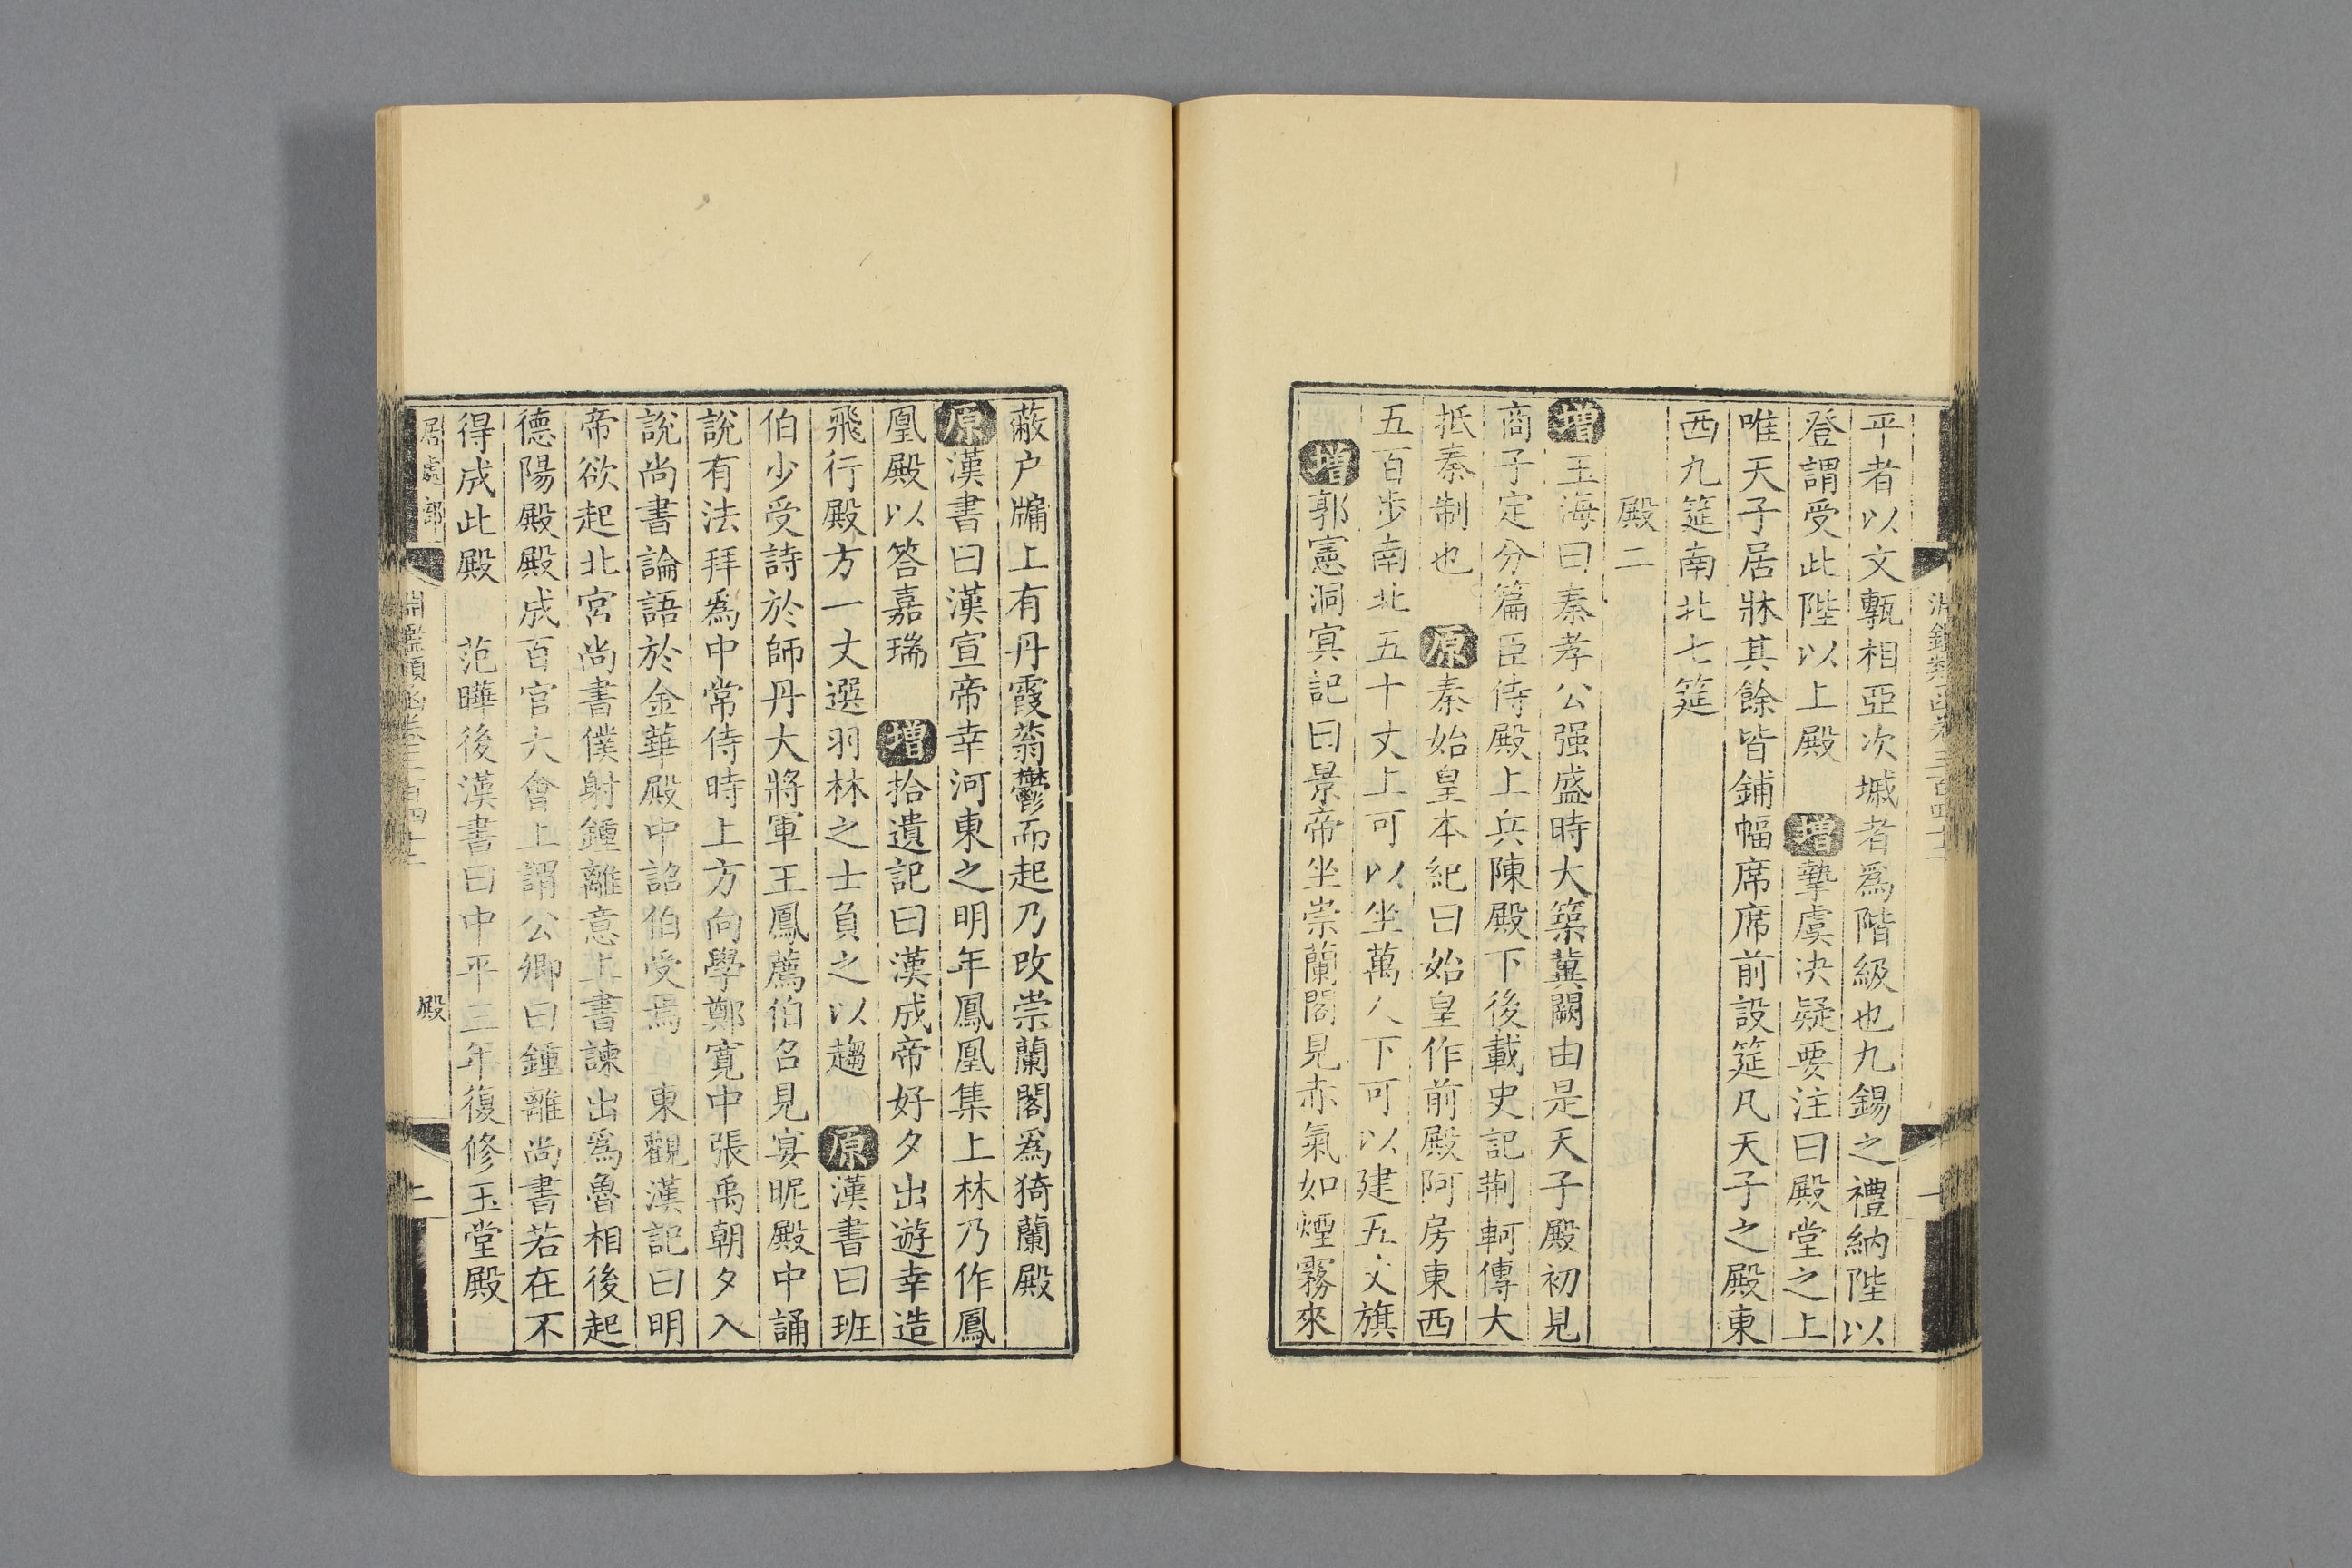 平者以文甎相亞次墄者爲階級也九錫之禮納陛以
登謂受此陛以上殿 增摯虞决疑要注曰殿堂之上
唯天子居牀其餘皆鋪幅席席前設筵凡天子之殿東
西九筵南北七筵
殿二
增玉海曰秦孝公强盛時大築冀闕由是天子殿初見
商子定分篇臣侍殿上兵陳殿下後載史記荆軻傳大
抵秦制也 原秦始皇本紀曰始皇作前殿阿房東西
五百步南北五十丈上可以坐萬人下可以建五丈旗
增郭憲洞冥記曰景帝坐崇蘭閣見赤氣如煙霧來
蔽户牖上有丹霞蓊鬱而起乃改崇蘭閣爲猗蘭殿
原漢書曰漢宣帝幸河東之明年鳳凰集上林乃作鳳
凰殿以答嘉瑞 增拾遺記曰漢成帝好夕出遊幸造
飛行殿方一丈選羽林之士負之以趨 原漢書曰班
伯少受詩於師丹大將軍王鳳薦伯召見宴昵殿中誦
說有法拜爲中常侍時上方向學鄭寛中張禹朝夕入
說尚書論語於金華殿中詔伯受焉 東觀漢記曰明
帝欲起北宮尚書僕射鍾離意上書諫出爲魯相後起
德陽殿殿成百官大會上謂公卿曰鍾離尚書若在不
得成此殿 范曄後漢書曰中平三年復修玉堂殿
居處部 淵鑑類函卷三百四十二 殿 二